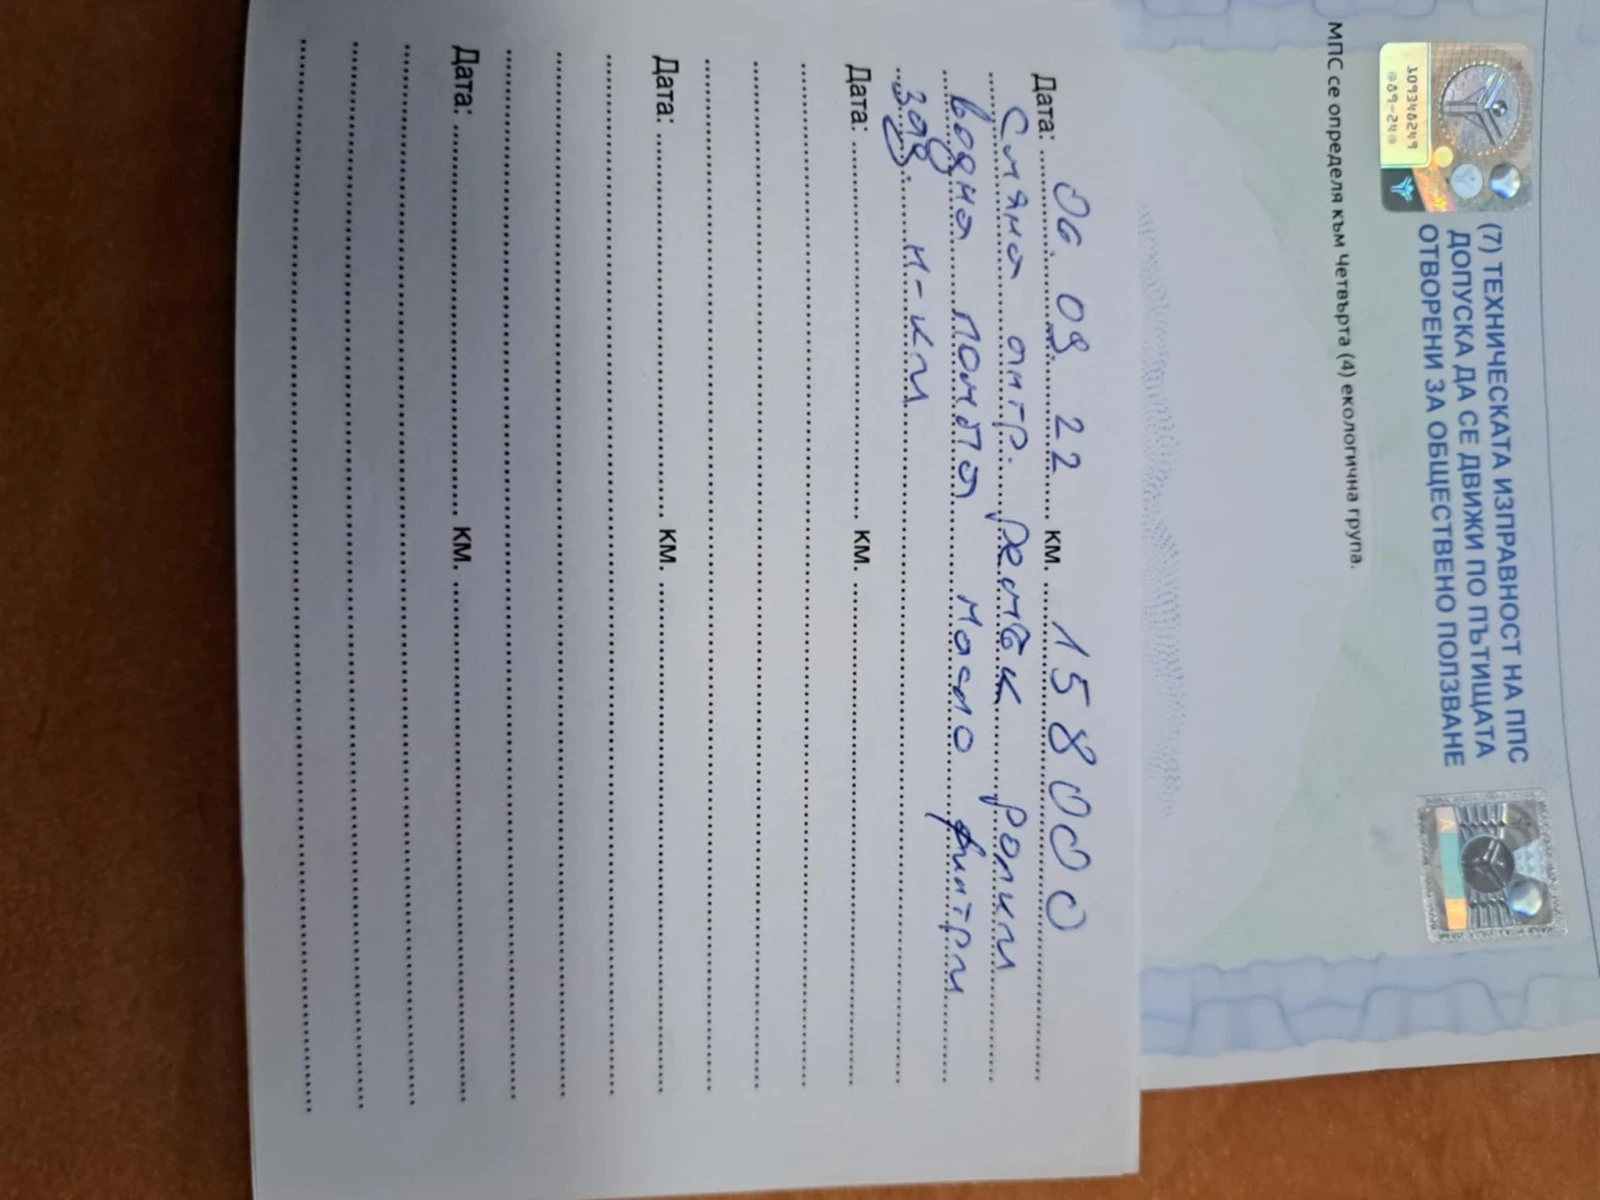 109348249
089-24
(7) ТЕХНИЧЕСКАТА ИЗПРАВНОСТ НА ППС
ДОПУСКА ДА СЕ ДВИЖИ ПО ПЪТИЩАТА
ОТВОРЕНИ ЗА ОБЩЕСТВЕНО ПОЛЗВАНЕ
МПС се определя към Четвърта (4) екологична група.
Дата: 06.09 22 км. 158000
Смяна ангр. ремък ролки
водна помпа масло филтри
зад. н-км
Дата: км.
Дата: км.
Дата: км.